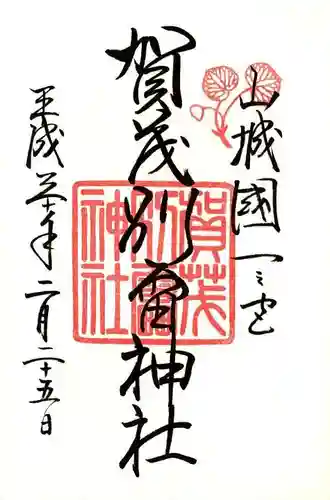 山城國一之宮
賀茂別雷神社
平成二十年二月二十五日
賀茂
別雷
神社